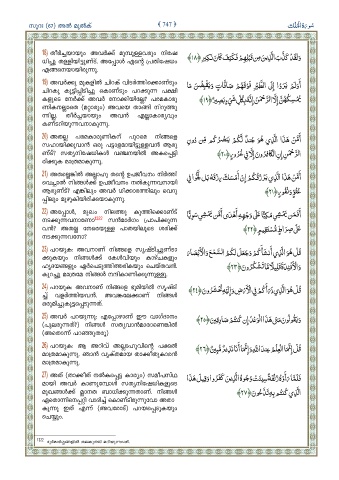 സൂറ: (67) അൽ മുൽക്
﴾ 747 ﴿
سورة الملك
18) തീർച്ചയായും അവർക്ക് മുമ്പുള്ളവരും നിഷേ
ധിച്ചു തള്ളിയിട്ടുണ്ട്. അപ്പോൾ എന്റെ പ്രതിഷേധം
എങ്ങനെയായിരുന്നു.
وَلَقَدْ كَذَّبَ الَّذِينَ مِن قَبْلِهِمْ فَكَيْفَ كَانَ نَكِيرِ ﴿١٨﴾
19) അവർക്കു മുകളിൽ ചിറക് വിടർത്തിക്കൊണ്ടും
ചിറകു കൂട്ടിപ്പിടിച്ചു കൊണ്ടും പറക്കുന്ന പക്ഷി
കളുടെ നേർക്ക് അവർ നോക്കിയില്ലേ? പരമകാരു
ണികനല്ലാതെ (മറ്റാരും) അവയെ താങ്ങി നിറുത്തു
ന്നില്ല. തീർച്ചയായും അവൻ എല്ലാകാര്യവും
കണ്ടറിയുന്നവനാകുന്നു.
أَوَلَمْ يَرَوْا إِلَى الطَّيْرِ فَوْقَهُمْ صَافَّاتٍ وَيَقْبِضْنَ مَا
يُمْسِكُهُنَّ إِلَّا الرَّحْمَنُ إِنَّهُ بِكُلِّ شَيْءٍ بَصِيرٌ ﴿١٩﴾
20) അതല്ല പരമകാരുണികന് പുറമെ നിങ്ങളെ
സഹായിക്കുവാൻ ഒരു പട്ടാളമായിട്ടുള്ളവൻ ആരു
ണ്ട്? സത്യനിഷേധികൾ വഞ്ചനയിൽ അകപ്പെട്ടി
രിക്കുക മാത്രമാകുന്നു.
أَمَّنْ هَذَا الَّذِي هُوَ جُندٌ لَّكُمْ يَنصُرُكُم مِّن دُونِ
الرَّحْمَنِ إِنِ الْكَافِرُونَ إِلَّا فِي غُرُورٍ ﴿٢٠﴾
21) അതല്ലെങ്കിൽ അല്ലാഹു തന്റെ ഉപജീവനം നിർത്തി
വെച്ചാൽ നിങ്ങൾക്ക് ഉപജീവനം നൽകുന്നവനായി
ആരുണ്ട്? എങ്കിലും അവർ ധിക്കാരത്തിലും വെറു
പ്പിലും മുഴുകിയിരിക്കയാകുന്നു.
أَمَّنْ هَذَا الَّذِي يَرْزُقُكُمْ إِنْ أَمْسَكَ رِزْقَهُ بَل لَّجُّوا فِي
عُتُوٍّ وَنُفُورٍ ﴿٢١﴾
22) അപ്പോൾ, മുഖം നിലത്തു കുത്തിക്കൊണ്ട്
നടക്കുന്നവനാണോ സന്മാർഗം പ്രാപിക്കുന്ന
വൻ? അതല്ല നേരെയുള്ള പാതയിലൂടെ ശരിക്ക്
നടക്കുന്നവനോ?
أَفَمَن يَمْشِي مُكِبًّا عَلَى وَجْهِهِ أَهْدَى أَمَّن يَمْشِي سَوِيًّا
عَلَى صِرَاطٍ مُّسْتَقِيمٍ ﴿٢٢﴾
23) പറയുക: അവനാണ് നിങ്ങളെ സൃഷ്ടിച്ചുണ്ടാ
ക്കുകയും നിങ്ങൾക്ക് കേൾവിയും കാഴ്ചകളും
ഹൃദയങ്ങളും ഏർപ്പെടുത്തിത്തരികയും ചെയ്തവൻ.
കുറച്ചു മാത്രമേ നിങ്ങൾ നന്ദികാണിക്കുന്നുള്ളൂ.
قُلْ هُوَ الَّذِي أَنشَأَكُمْ وَجَعَلَ لَكُمُ السَّمْعَ وَالْأَبْصَارَ
وَالْأَفْئِدَةَ قَلِيلًا مَّا تَشْكُرُونَ ﴿٢٣﴾
24) പറയുക: അവനാണ് നിങ്ങളെ ഭൂമിയിൽ സൃഷ്ടി
ച്ച് വളർത്തിയവൻ. അവങ്കലേക്കാണ് നിങ്ങൾ
ഒരുമിച്ചുകൂട്ടപ്പെടുന്നത്.
قُلْ هُوَ الَّذِي ذَرَأَكُمْ فِي الْأَرْضِ وَإِلَيْهِ تُحْشَرُونَ ﴿٢٤﴾
25) അവർ പറയുന്നു: എപ്പോഴാണ് ഈ വാഗ്ദാനം
(പുലരുന്നത്?) നിങ്ങൾ സത്യവാന്മാരാണെങ്കിൽ
(അതൊന്ന് പറഞ്ഞുതരൂ)
وَيَقُولُونَ مَتَى هَذَا الْوَعْدُ إِن كُنتُمْ صَادِقِينَ ﴿٢٥﴾
26) പറയുക: ആ അറിവ് അല്ലാഹുവിന്റെ പക്കൽ
മാത്രമാകുന്നു. ഞാൻ വ്യക്തമായ താക്കീതുകാരൻ
മാത്രമാകുന്നു.
قُلْ إِنَّمَا الْعِلْمُ عِندَ اللَّهِ وَإِنَّمَا أَنَا نَذِيرٌ مُّبِينٌ ﴿٢٦﴾
27) അത് (താക്കീത് നൽകപ്പെട്ട കാര്യം) സമീപസ്ഥ
മായി അവർ കാണുമ്പോൾ സത്യനിഷേധികളുടെ
മുഖങ്ങൾക്ക് മ്ലാനത ബാധിക്കുന്നതാണ്. നിങ്ങൾ
ഏതൊന്നിനെപ്പറ്റി വാദിച്ച് കൊണ്ടിരുന്നുവോ അതാ
കുന്നു ഇത് എന്ന് (അവരോട്) പറയപ്പെടുകയും
ചെയ്യും.
فَلَمَّا رَأَوْهُ زُلْفَةً سِيئَتْ وُجُوهُ الَّذِينَ كَفَرُوا وَقِيلَ هَذَا
الَّذِي كُنتُم بِهِ تَدَّعُونَ ﴿٢٧﴾